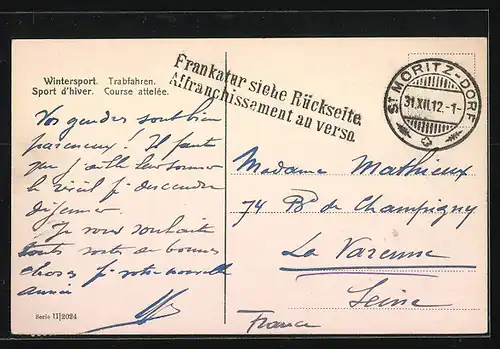 Wintersport. Trabfahren.
Sport d'hiver. Course attelée.
Frankatur siehe Rückseite.
Affranchissement au verso.
ST MORITZ-DORF
31.XII.12.-1-
Vos gendres sont bien
paresseux! Il faut
que j'aille
le vieil je descendre
déjeuner
Je vous souhaite
toutes sortes de bonnes
choses p. votre nouvelle
année
Madame Mathieux
74 Bd de Champigny
La Varenne
Seine
France
Serie 11|2024